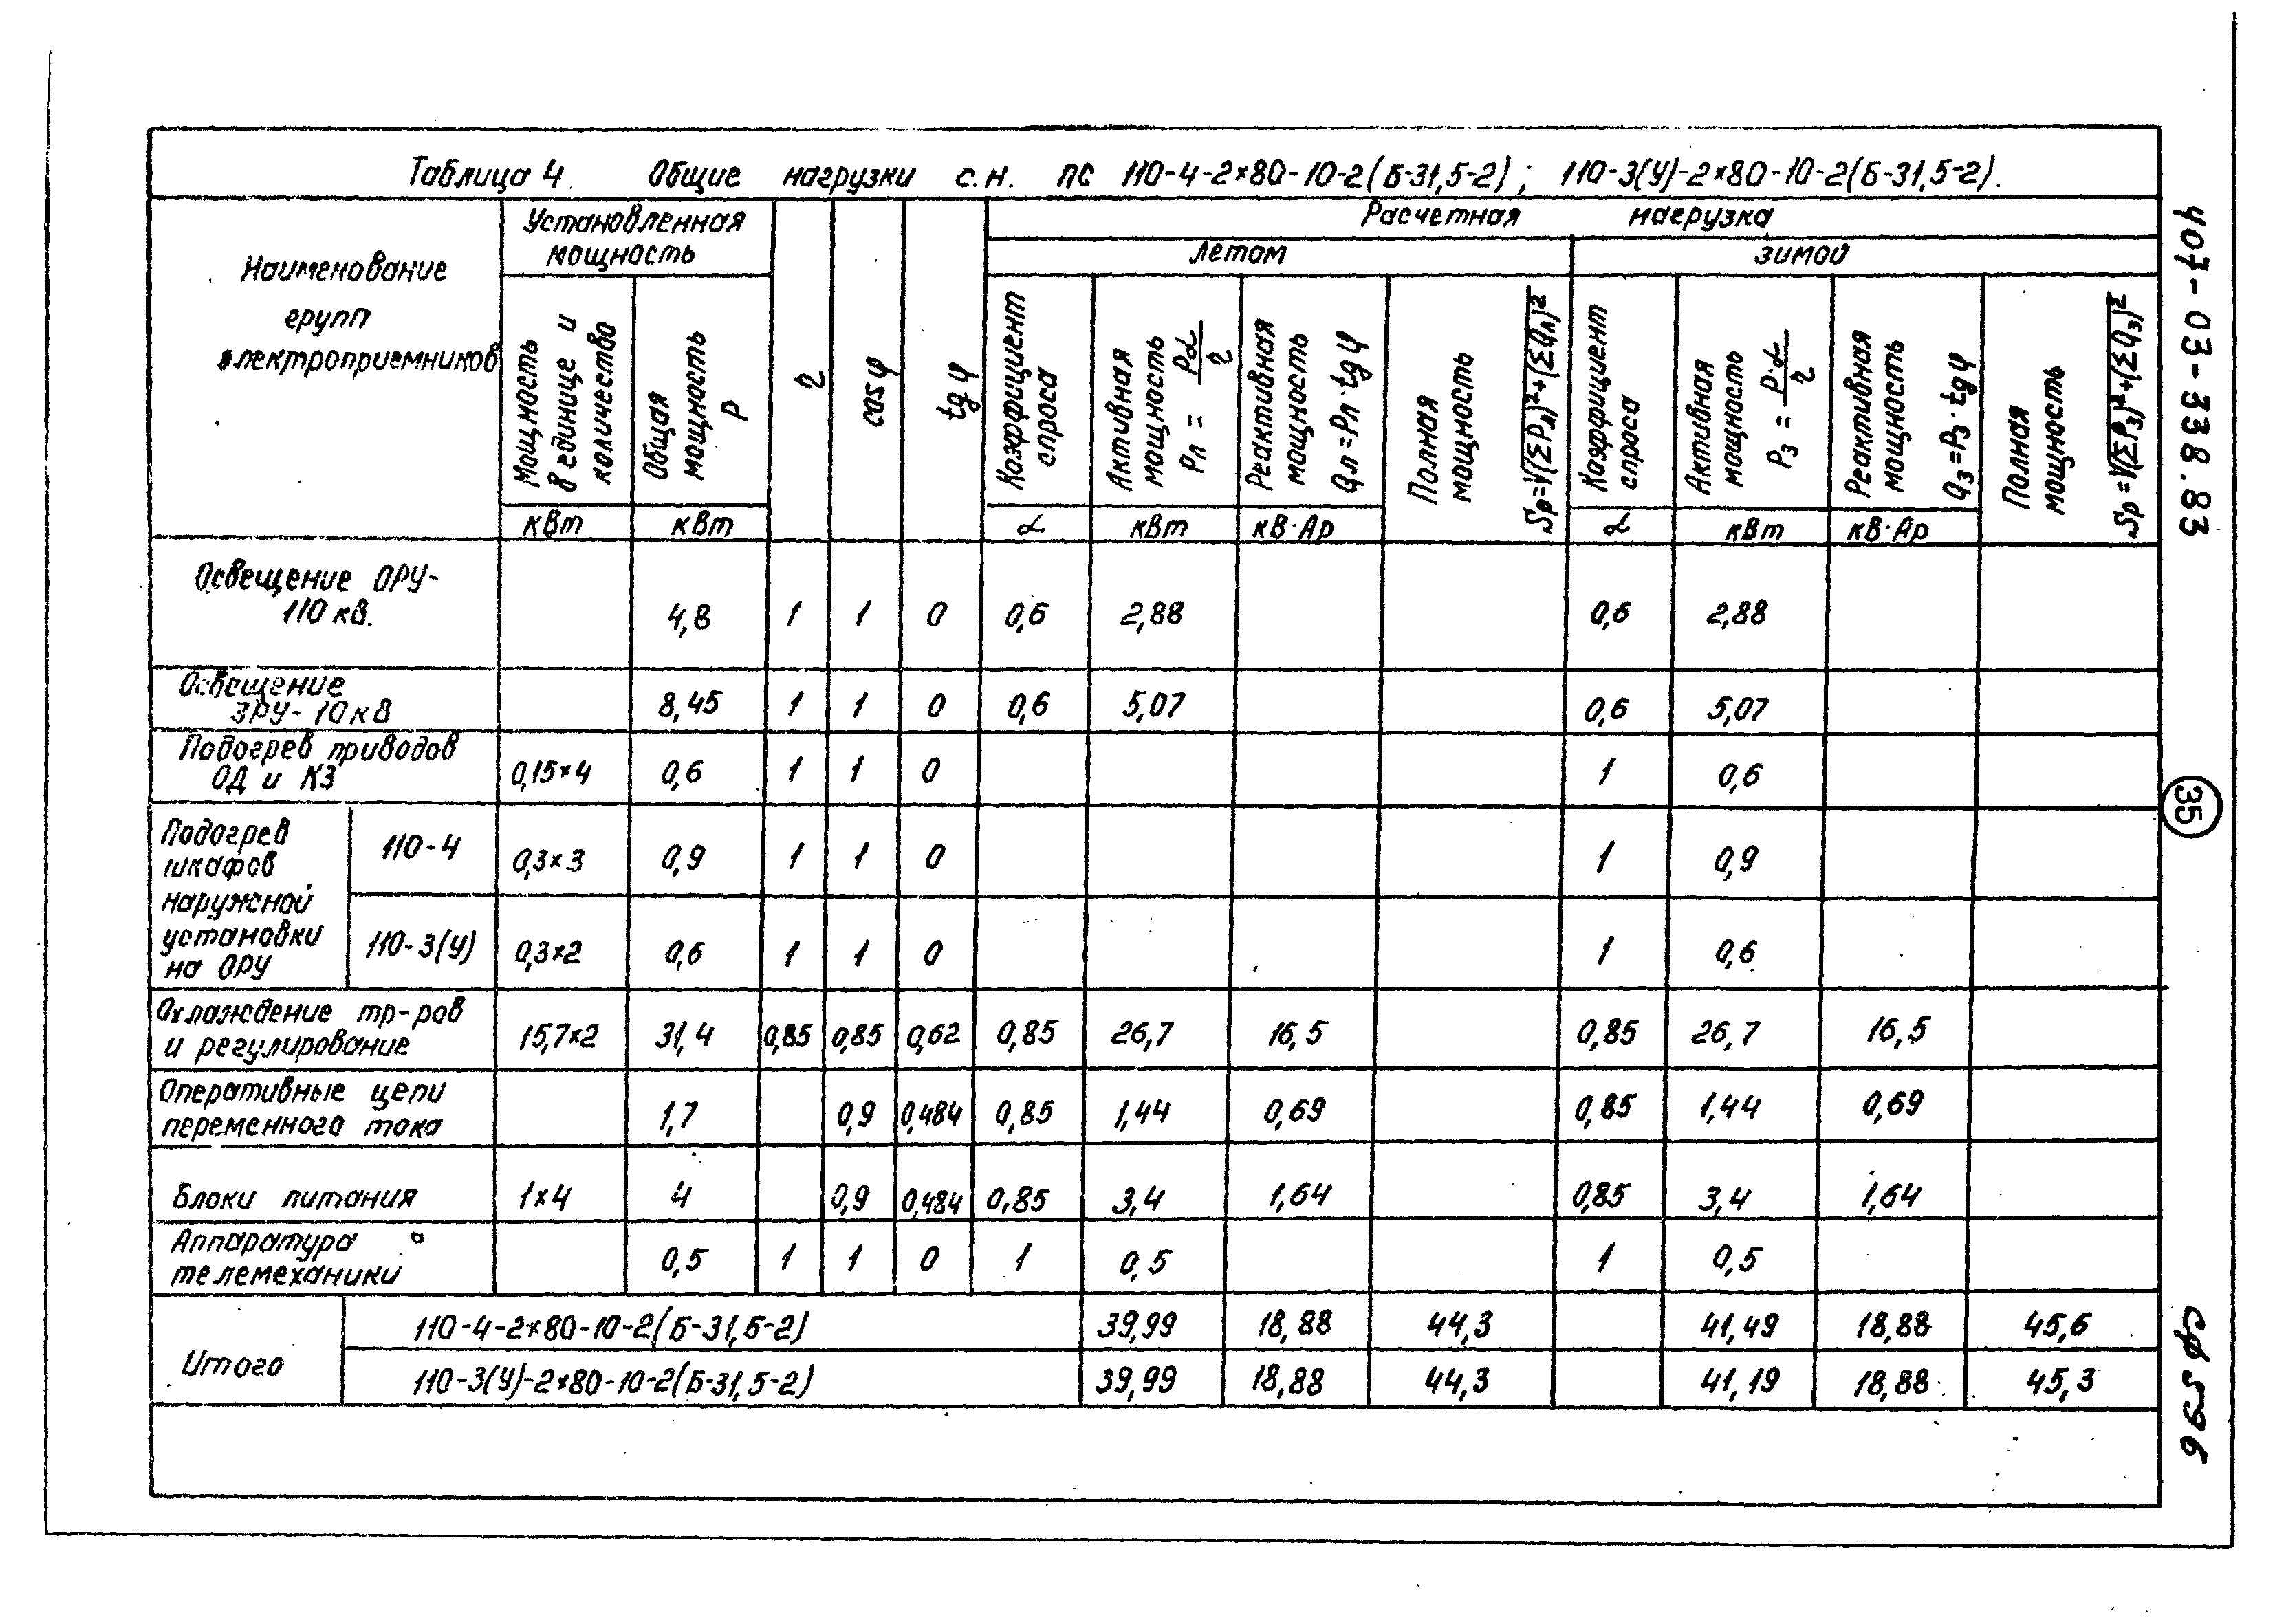 Таблица 4. Общие нагрузки с.н. ПС 110-4-2×80-10-2(Б-31,5-2); 110-3(У)-2×80-10-2(Б-31,5-2).
Наименование
групп
электроприемников
Установленная
мощность
Мощность
в единице и
количество
кВт
Общая
мощность
P
кВт
η
cos φ
tg φ
Расчетная нагрузка
летом
Коэффициент
спроса
α
Активная
мощность
Pл = Pα/η
кВт
Реактивная
мощность
Qл=Pл·tg φ
кВ·Ар
Полная
мощность
Sр=√(ΣPл)²+(ΣQл)²
зимой
Коэффициент
спроса
α
Активная
мощность
P₃ = P·α/η
кВт
Реактивная
мощность
Q₃=P₃·tg φ
кВ·Ар
Полная
мощность
Sр=√(ΣP₃)²+(ΣQ₃)²
Освещение ОРУ-
110 кВ.
4,8 1 1 0 0,6 2,88 0,6 2,88
Освещение
ЗРУ-10кВ
8,45 1 1 0 0,6 5,07 0,6 5,07
Подогрев приводов
ОД и КЗ
0,15×4 0,6 1 1 0 1 0,6
Подогрев
шкафов
наружной
установки
на ОРУ
110-4 0,3×3 0,9 1 1 0 1 0,9
110-3(У) 0,3×2 0,6 1 1 0 1 0,6
Охлаждение тр-ров
и регулирование
15,7×2 31,4 0,85 0,85 0,62 0,85 26,7 16,5 0,85 26,7 16,5
Оперативные цепи
переменного тока
1,7 0,9 0,484 0,85 1,44 0,69 0,85 1,44 0,69
Блоки питания 1×4 4 0,9 0,484 0,85 3,4 1,64 0,85 3,4 1,64
Аппаратура
телемеханики
0,5 1 1 0 1 0,5 1 0,5
Итого
110-4-2×80-10-2(Б-31,5-2) 39,99 18,88 44,3 41,49 18,88 45,6
110-3(У)-2×80-10-2(Б-31,5-2) 39,99 18,88 44,3 41,19 18,88 45,3
407-03-338.83
35
сф 596